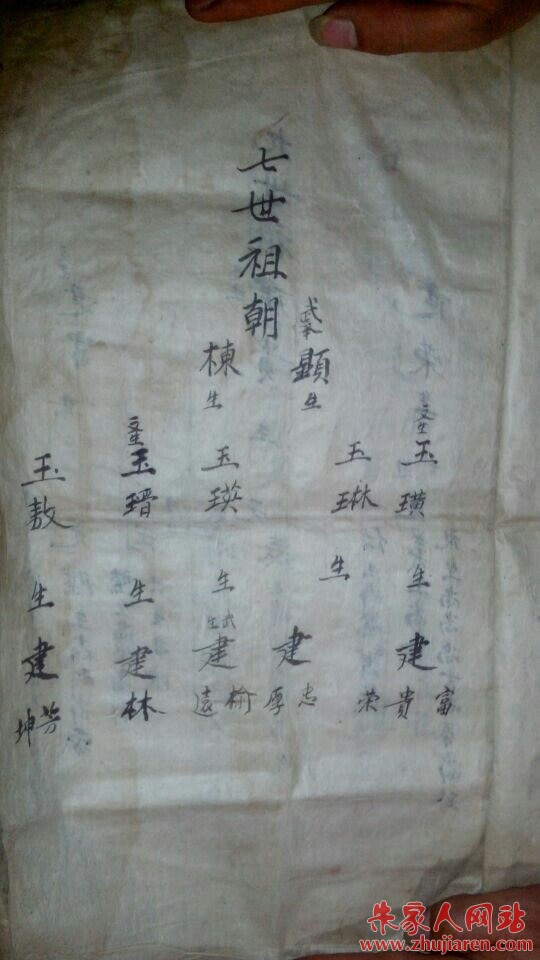 七世祖朝
武舉 顯 生
棟 生
文生 玉璜 生 建 富 貴 荣
玉琳 生 建 忠 厚
玉瑛 生 武生 建 榆 遠
文生 玉瑨 生 建林
玉敖 生 建 芳 坤
朱家人网站
www.zhujiaren.com